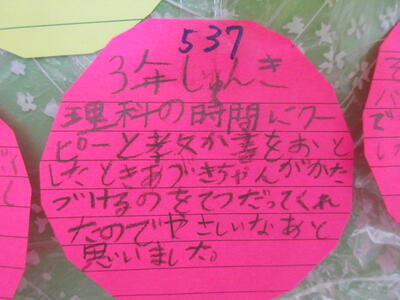 537
3年じゅんき
理科の時間にクー
ピーと孝女が書をおと
したときあづきちゃんがかた
づけるのをてつだってくれ
たのでやさしいなあと
思いました。